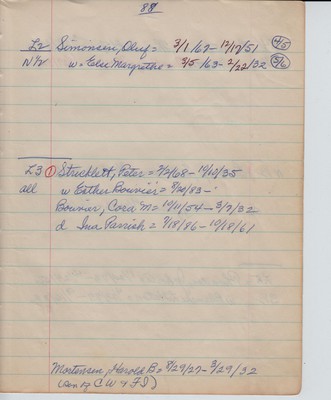 88
L2 Simonsen, Oluf = 3/1/62- 12/17/51 4/5
N 1/2 w = Else Margrethe = 3/5/63- 2/22/32 5/6
L3 1 Stricklett, Peter = 7/2/68- 10/10/35
all w Esther Bouvier = 8/20/83-
Bouvier, Cora M = 10/11/54- 3/7/32
d Ina Parrish = 7/18/86- 10/18/61
Mortensen, Harold B = 8/29/27- 3/29/32
(son of C W & F I)